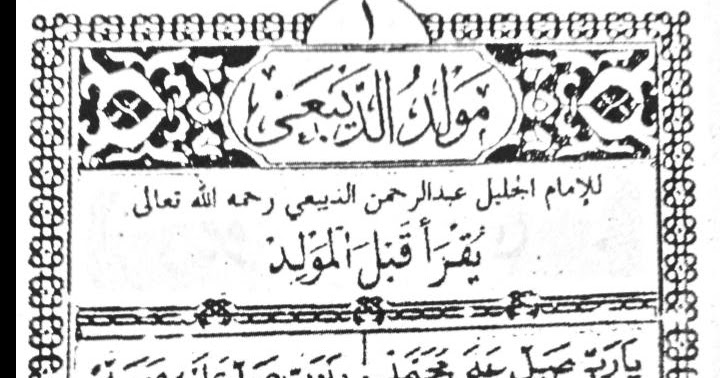 ١
مَوْلِدُ الدَّيْبَعِيْ
للإمام الجليل عبدالرحمن الديبعي رحمه الله تعالى
يُقْرَأُ قَبْلَ الْمَوْلِدْ
يَارَبِّ صَلِّ عَلَى مُحَمَّدْ يَارَبِّ صَلِّ عَلَيْهِ وَسَلِّمْ